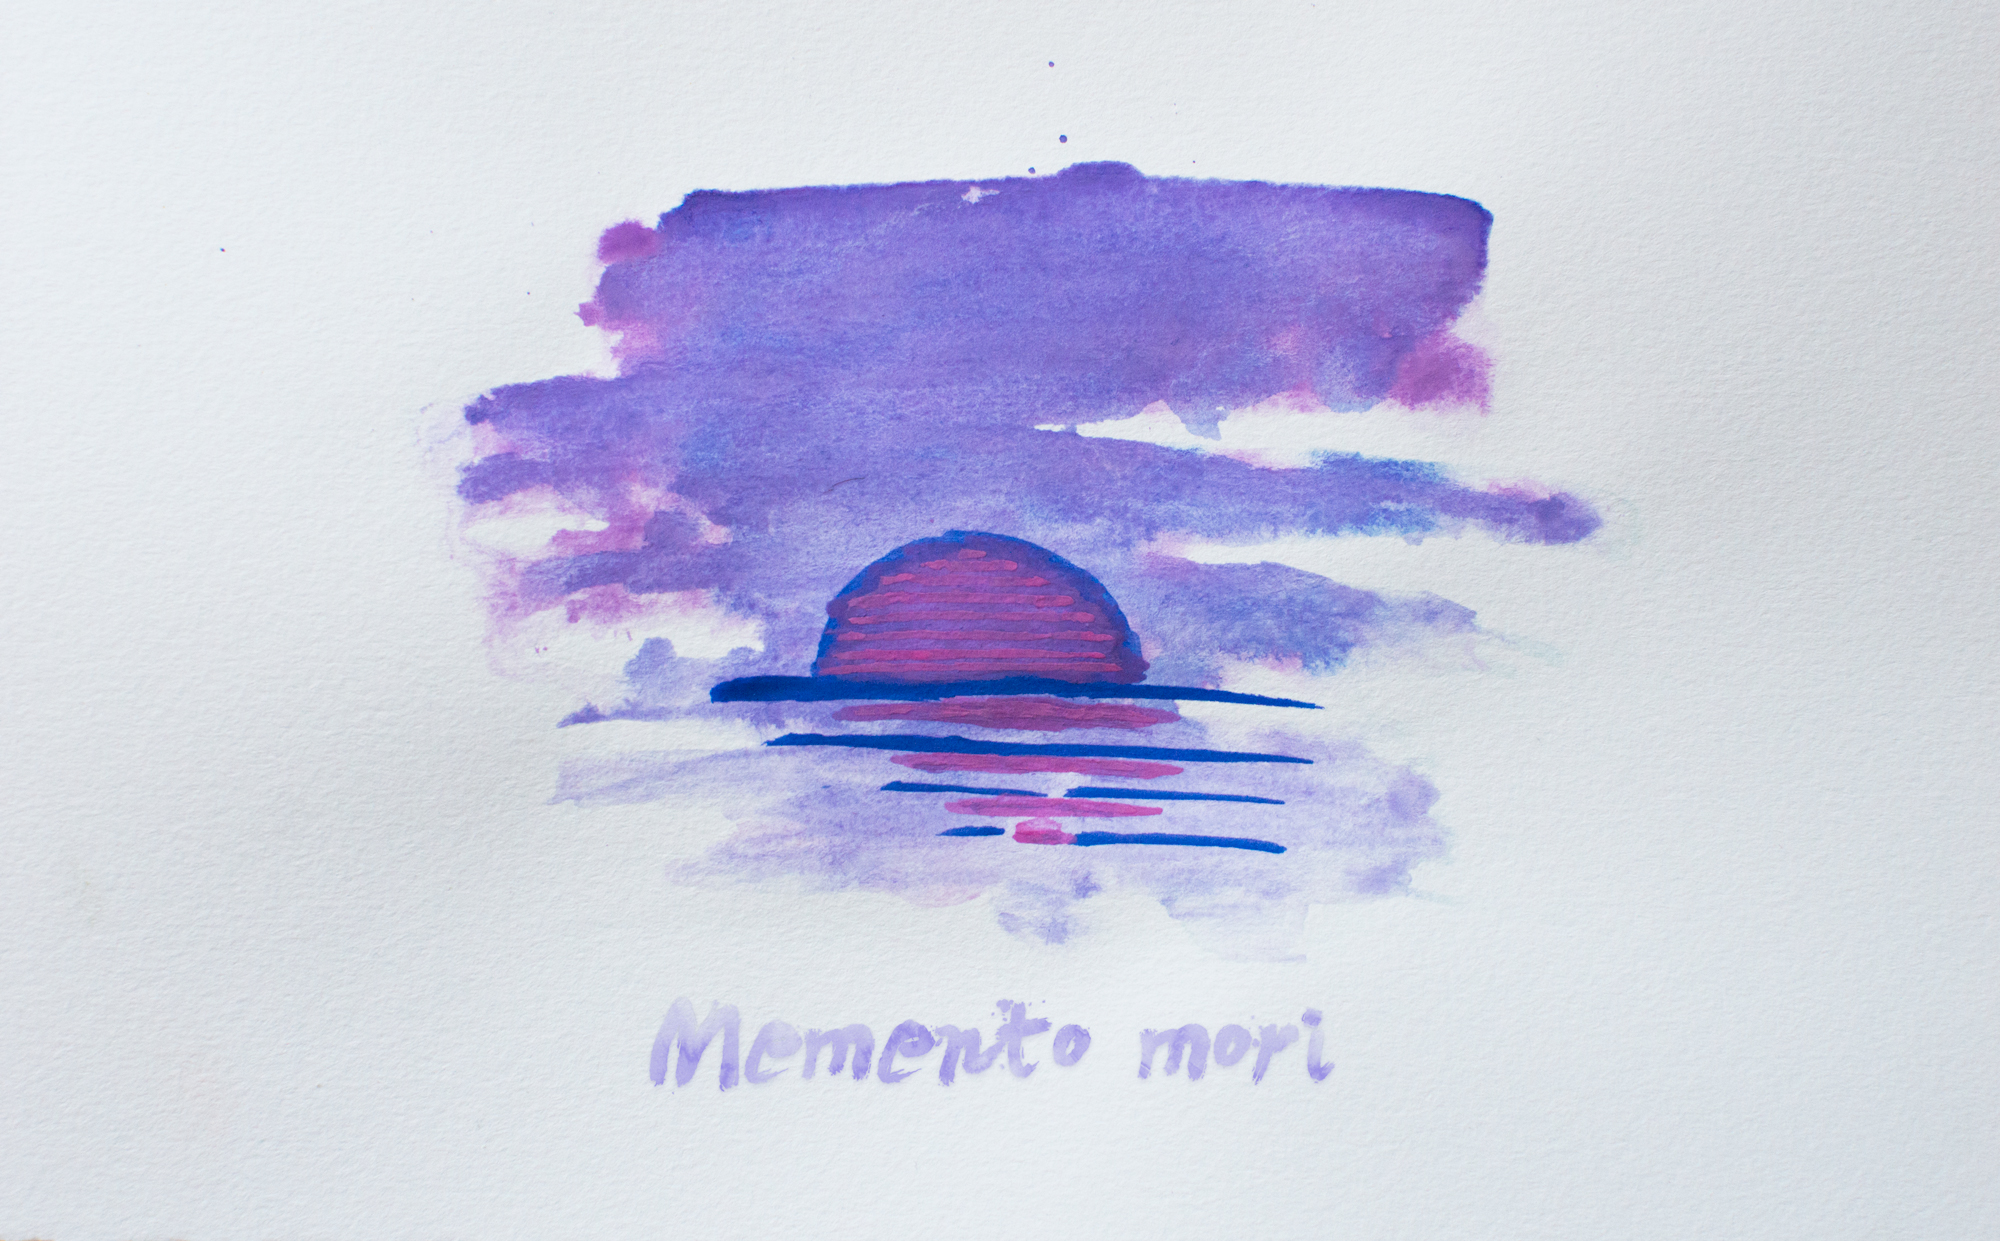 Memento mori